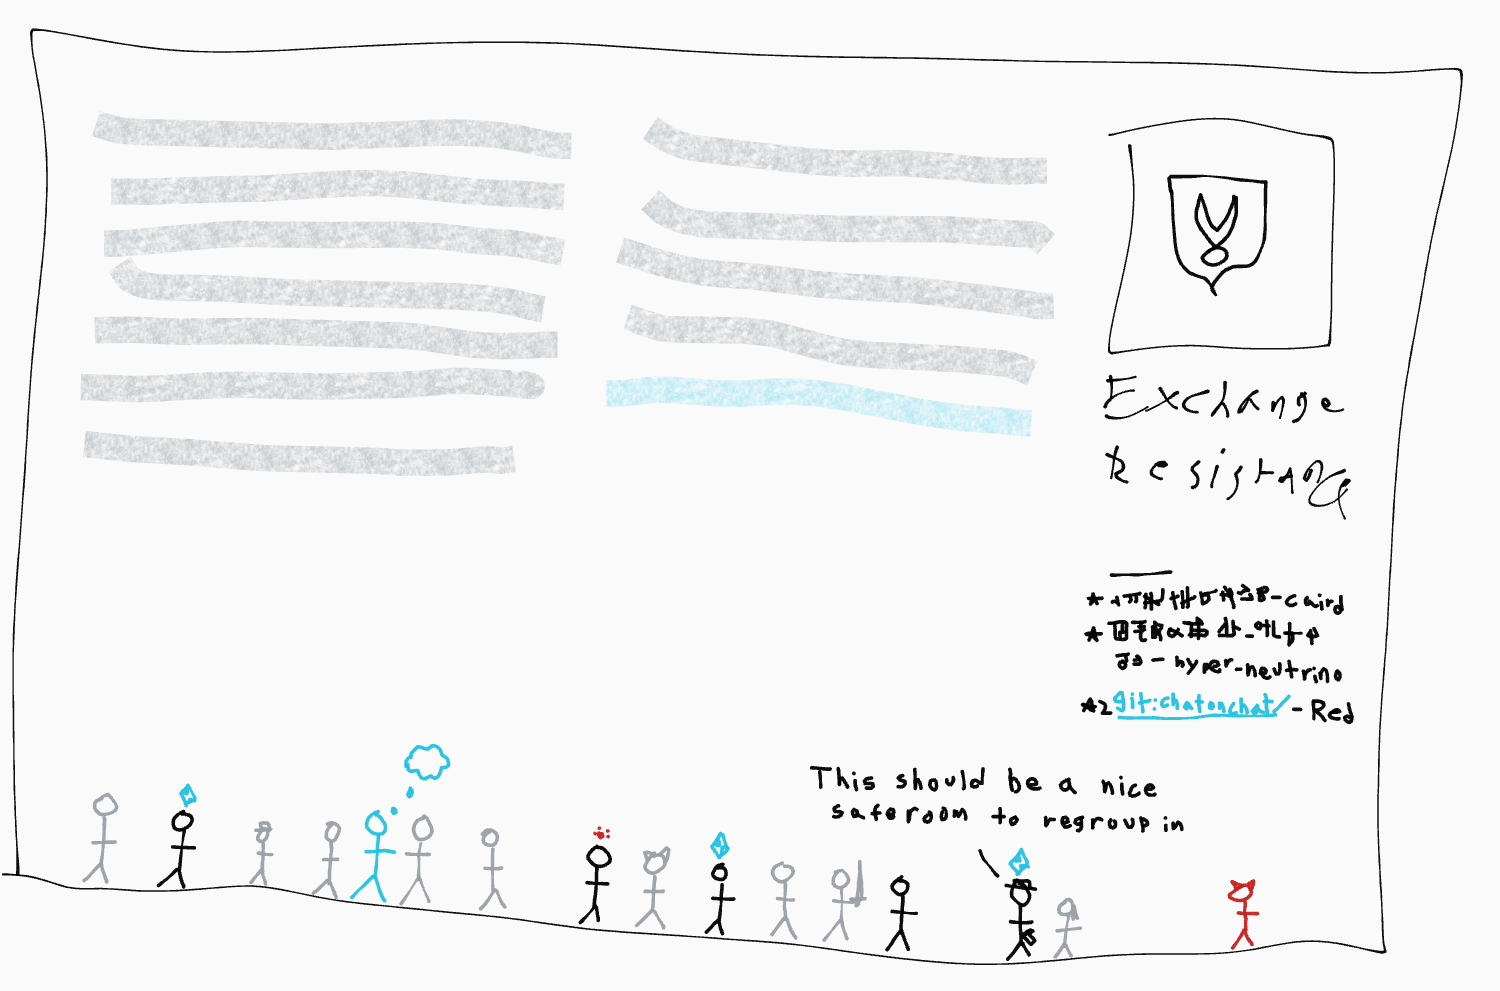 Exchange
Resistance
-caird
-hyper-neutrino
*2 git:chatonchat/ -Red
This should be a nice
saferoom to regroup in